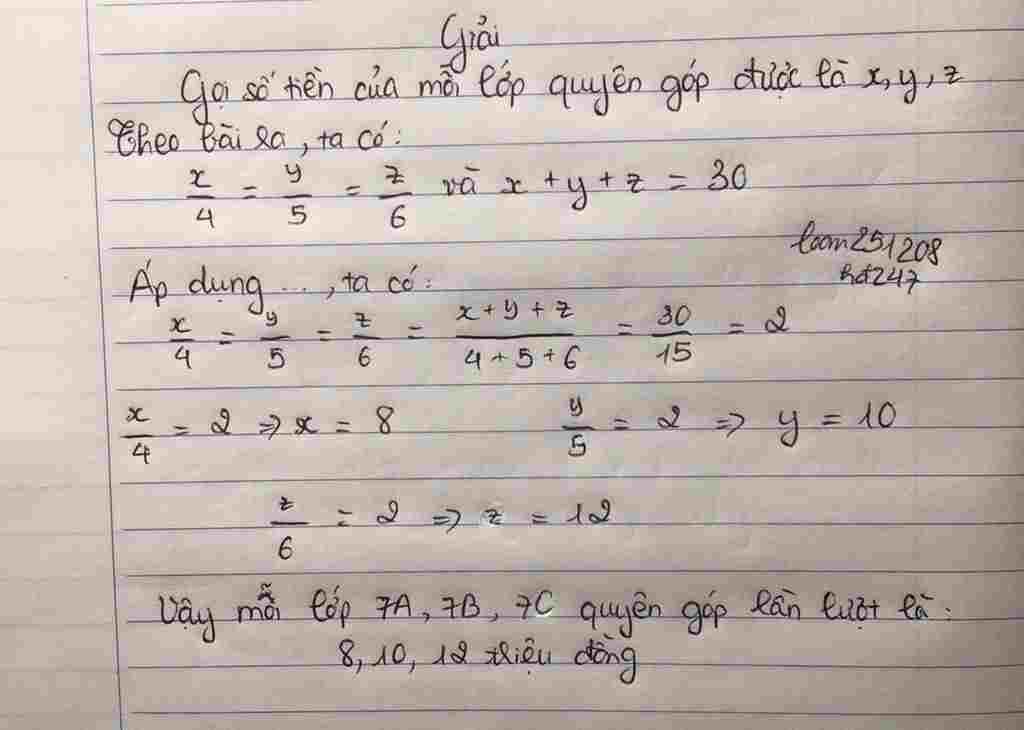 Giải
Gọi số tiền của mỗi lớp quyên góp được là x, y, z
Theo bài ra, ta có:
x/4 = y/5 = z/6 và x + y + z = 30
loom251208
hd247
Áp dụng ..., ta có:
x/4 = y/5 = z/6 = (x + y + z)/(4 + 5 + 6) = 30/15 = 2
x/4 = 2 => x = 8 y/5 = 2 => y = 10
z/6 = 2 => z = 12
Vậy mỗi lớp 7A, 7B, 7C quyên góp lần lượt là:
8, 10, 12 triệu đồng